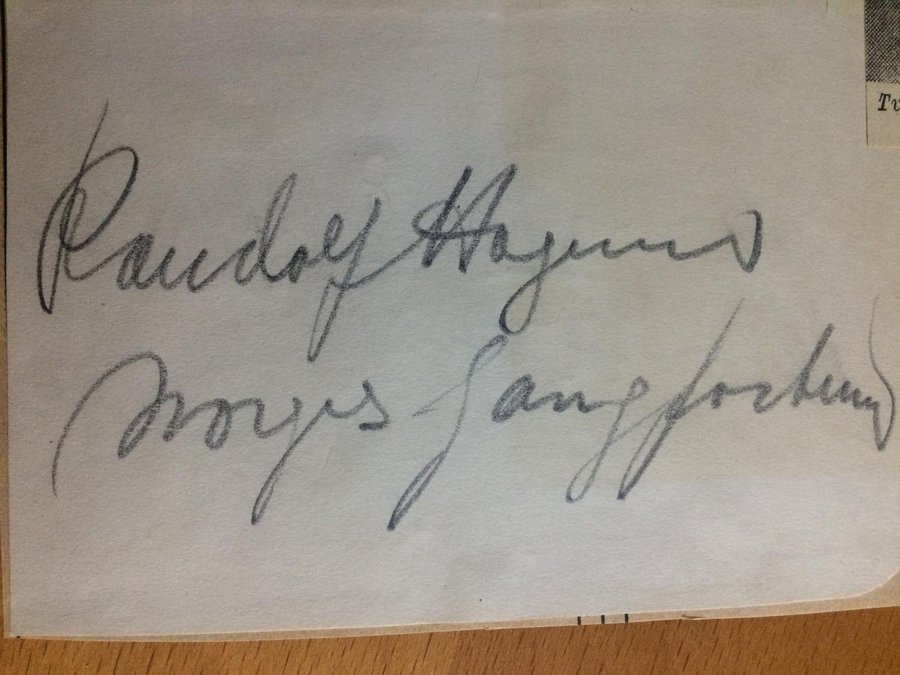 Tv
Randolf Hagund
Norges Gangforbund